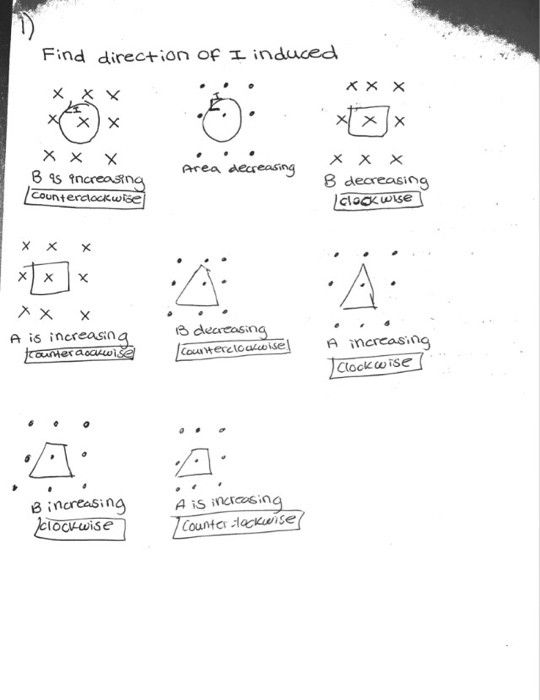 1)
Find direction of I induced
X X X
I
X X X
X X X
B is increasing
counterclockwise
I
Area decreasing
X X X
X X X
X X X
B decreasing
clockwise
X X X
X X X
X X X
A is increasing
counterclockwise
B decreasing
counterclockwise
A increasing
clockwise
B increasing
clockwise
A is increasing
counterclockwise